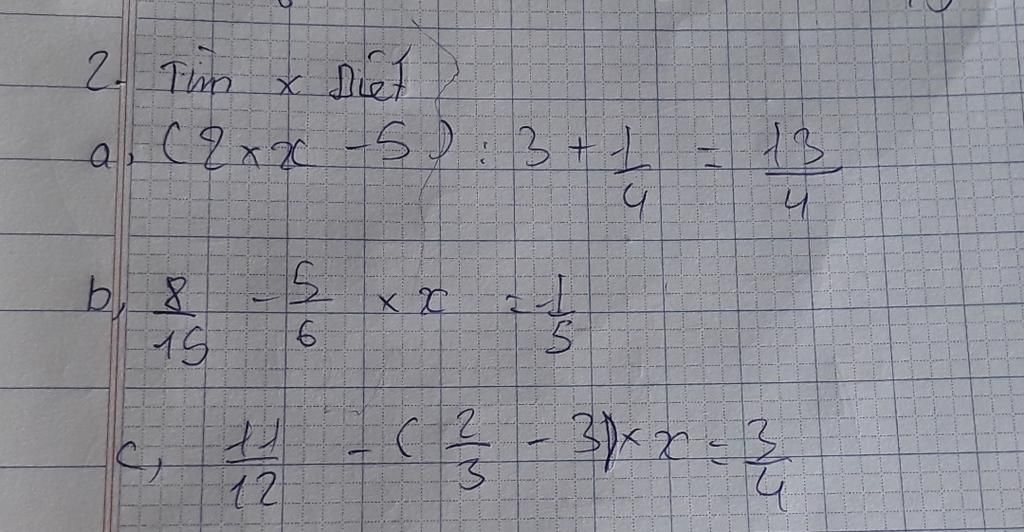 2. Tìm x Diết
a, (2 × x - 5) : 3 + 1/4 = 13/4
b, 8/15 - 5/6 × x = 1/5
c, 11/12 - (2/3 - 3) × x = 3/4